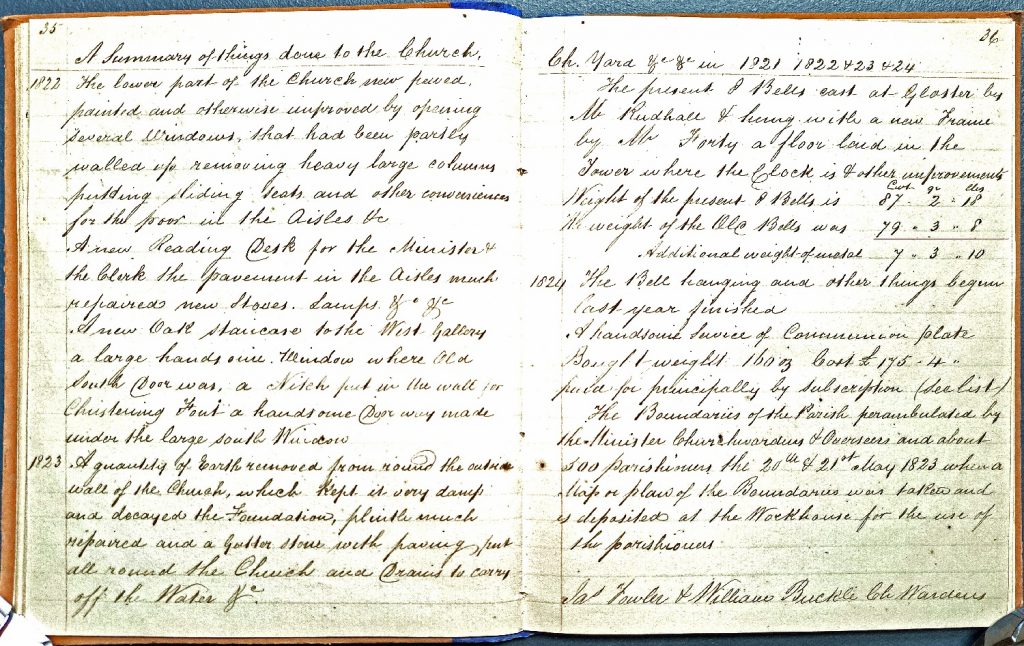 35
A Summary of things done to the Church,
1822 The lower part of the Church new paved,
painted and otherwise improved by opening
several Windows, that had been partly
walled up removing heavy large columns
putting sliding seats and other conveniences
for the poor in the Aisles &c
A new Reading Desk for the Minister &
the Clerk the pavement in the Aisles much
repaired new Stoves. Lamps &c &c
A new Oak staircase to the West Gallery
a large handsome Window where Old
South Door was, a Nitch put in the wall for
Christening Font a handsome Door way made
under the large south Window
1823 A quantity of Earth removed from round the outside
wall of the Church, which kept it very damp
and decayed the Foundation, plinth much
repaired and a Gutter stone with paving put
all round the Church and Drains to carry
off the Water &c.
36
Ch. Yard &c &c in 1921 1822 & 23 & 24
The present 8 Bells cast at Gloster by
Mr Rudhall & hung with a new Frame
by Mr Forty a floor laid in the
Tower where the Clock is & other improvements
Cwt qr lbs
Weight of the present 8 Bells is 87 " 2 " 18
The weight of the Old Bells was 79 " 3 " 8
Additional weight of metal 7 " 3 " 10
1824 The Bell hanging and other things begun
last year finished
A handsome Service of Communion plate
Bought weight 160 oz Cost £175 " 4 "
paid for principally by subscription (see list)
The Boundaries of the Parish perambulated by
the Minister Churchwardens & Overseers and about
500 parishioners the 20th & 21st May 1823 when a
Map or plan of the Boundaries was taken and
is deposited at the Workhouse for the use of
the parishioners
Jas Fowler & William Buckle Ch Wardens